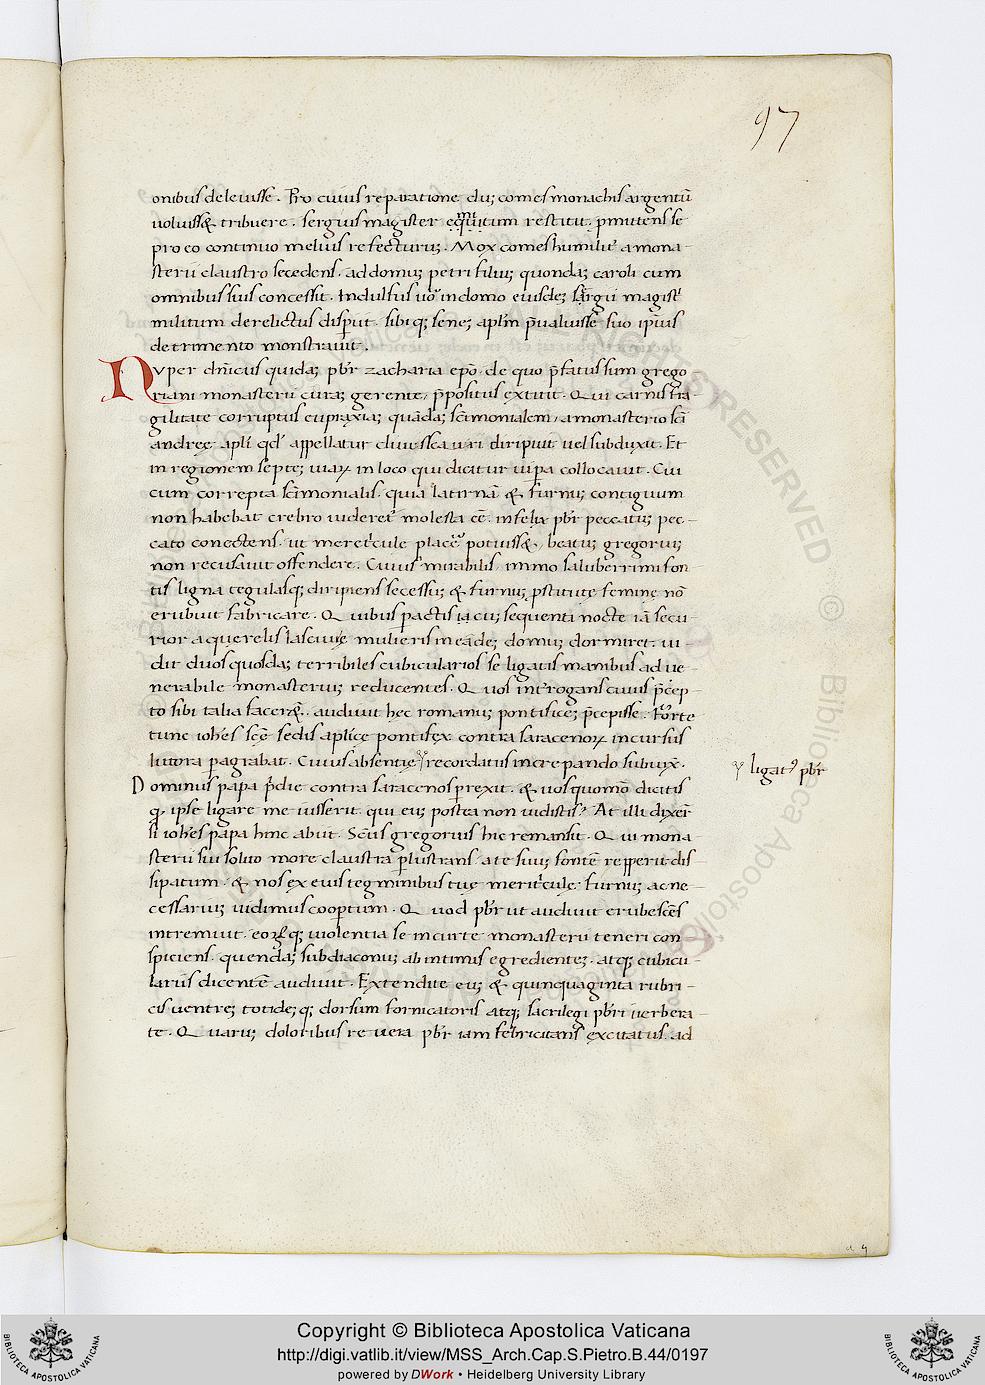 97
onibus delevisse. Pro cuius reparatione dũ; comes monachis argentũ
voluiss& tribuere. sergius magister restituit; pmittens se
pro eo continuo melius refecturũ; Mox comes humilit̃ a mona-
sterii claustro secedens. ad domũ; petri filiũ; quondã; caroli cum
omnibus suis concessit. Indulsus ũo in domo eiusdẽ; sergii magist̃
militum derelictus disperuit. sibi q; senẽ; aplm p̃valuisse suo ipsius
detrimento monstravit.
Nuper dñicus quidã; pbr zacharia epõ. de quo p̃fatus sum grego
riani monasterii curã; gerente, p̃positus extitit. Qui carnis fra-
gilitate corruptus eupraxiã; quãdã; sc̃imonialem, a monasterio sc̃i
andreę apli qd' appellatur clivi scauri diripuit vel subduxit. Et
in regionem septẽ; viarꝝ in loco qui dicitur vip̃a collocavit. Cui
cum correpta sc̃imonialis. quia latrinã & furnũ; contiguum
non habebat crebro videret̃ molesta eẽ. infelix pbr peccatũ; pec-
cato conectens. ut meretricule placẽ potuiss&, beatũ; gregoriũ;
non recusavit offendere. Cuius mirabilis, immo saluberrimi fon-
tis ligna tegulasq; diripiens secessũ; & furnũ; pstitutę feminę nõ
erubuit fabricare. Quibus pactis iã cũ; sequenti nocte iã secu-
rior a querelis lascivię mulieris in eãdẽ; domũ; dormiret. vi-
dit duos quosdã; terribiles cubicularios se ligatis manibus ad ve-
nerabile monasteriũ; reducentes. Quos int̃rogans cuius p̃cep-
to sibi talia facer&. audivit hec romanũ; pontificẽ; p̃cepisse. Forte
tunc iohẽs scę sedis aplicę pontifex contra saracenorꝝ incursus
litora pagrabat. Cuius absentię recordatus increpando subiũx.
Dominus papa p̃die contra saracenos prexit. & vos quomõ dicitis
q; ipse ligare me iusserit. qui eũ; postea non vidistis? At illi dixer̃
si iohẽs papa hinc abiit. Sc̃us gregorius hic remansit. Qui mona-
sterii sui solito more claustra plustrans. a te suũ; fontẽ repperit dis-
sipatum. & nos ex eius tegminibus tuę meretricule. furnũ; ac ne-
cessariũ; vidimus coopertum. Quod pbr ut audivit erubescẽs
intremuit. eorꝝq; violentia se in curte monasterii teneri con
spiciens. quendã; subdiaconũ; ab intimis egredientẽ;. atq; cubicu-
lariis dicentẽ audivit. Extendite eũ; & quinquaginta rubri-
cis ventrẽ; totidẽ; q; dorsum fornicatoris atq; sacrilegi pbri verbera
te. Quarũ; doloribus revera pbr iam febricitans excitatus. ad
ligat᾿ pbr
ALL RIGHTS RESERVED © Biblioteca Apostolica
Copyright © Biblioteca Apostolica Vaticana
http://digi.vatlib.it/view/MSS_Arch.Cap.S.Pietro.B.44/0197
powered by DWork • Heidelberg University Library
BIBLIOTECA APOSTOLICA VATICANA
BIBLIOTECA APOSTOLICA VATICANA